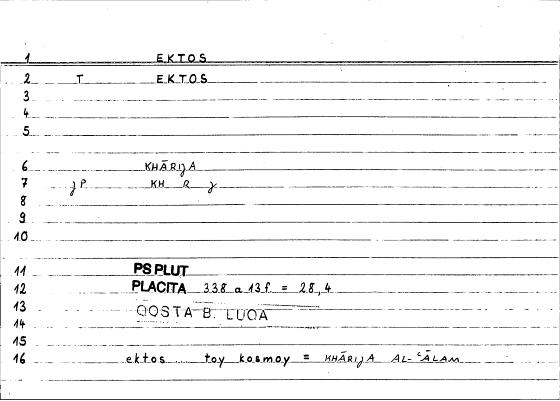 1 EKTOS
2 T EKTOS
3
4
5
6 KHĀRIJA
7 jP KH R J
8
9
10
11 PS PLUT
12 PLACITA 338 a 13 f. = 28,4
13 QOSTA B. LUQA
14
15
16 ektos toy kosmoy = KHĀRIJA AL-ʿĀLAM